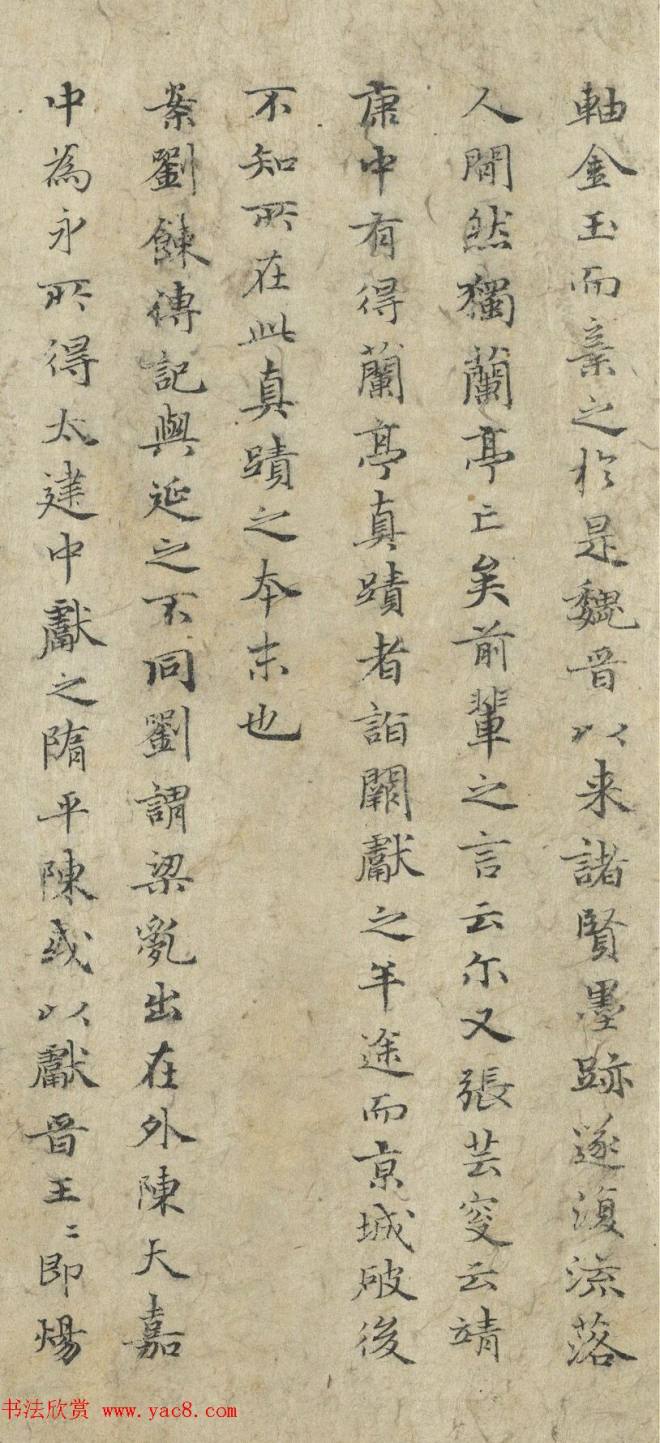 軸金玉而棄之於是魏晉以来諸賢墨跡遂復流落
人間然獨蘭亭亡矣前輩之言云尔又張芸叟云靖
康中有得蘭亭真蹟者詣闕獻之半途而京城破後
不知所在此真蹟之本末也
案劉餗傳記與延之不同劉謂梁亂出在外陳天嘉
中為永所得太建中獻之隋平陳或以獻晉王〻即煬
书法欣赏 www.yac8.com